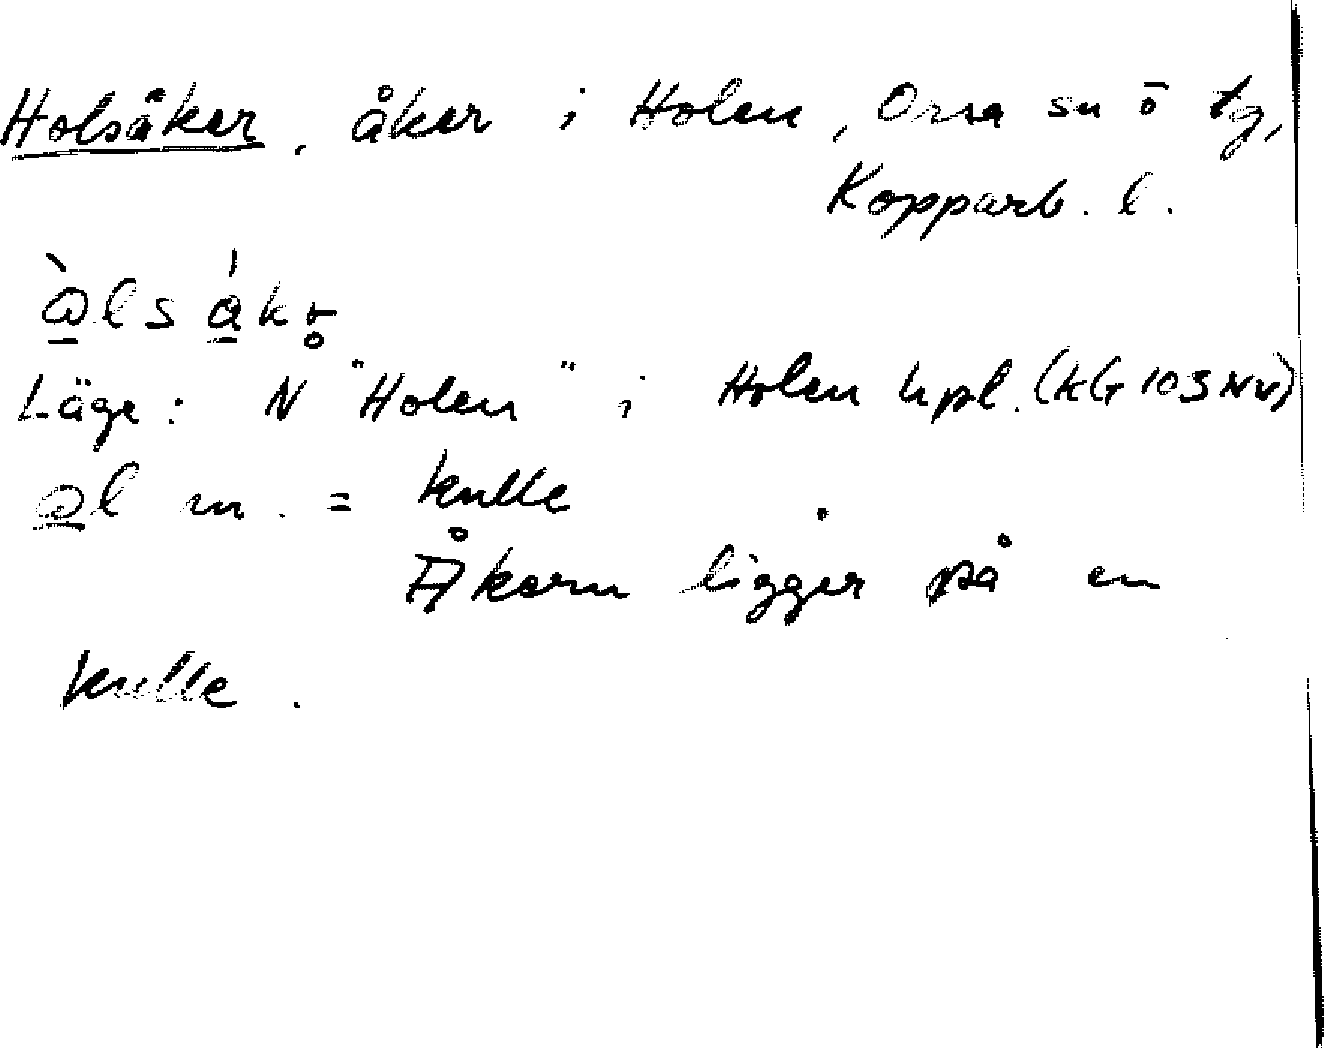 Holsåker, åker i Holen, Orsa sn ö tg,
Kopparb. l.
Läge: N "Holen" i Holen hpl. (KG 103 NV)
m. = kulle
Åkern ligger på en
kulle.